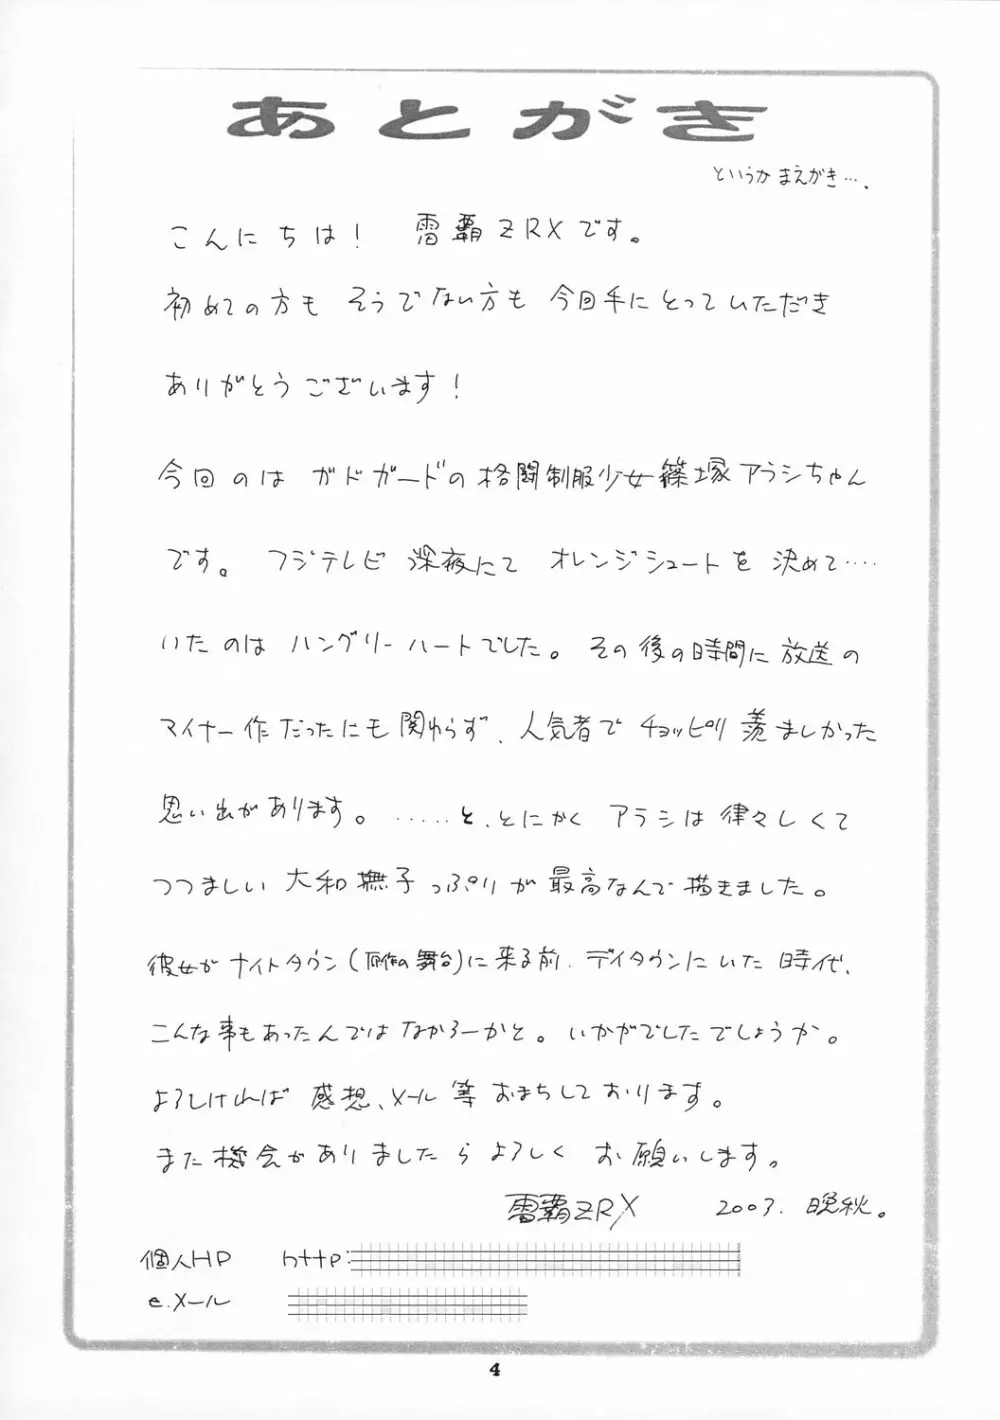 あとがき
というか まえがき….
こんにちは! 雷覇ZRXです。
初めての方も そうでない方も 今回手にとっていただき
ありがとうございます!
今回のは ガドガードの格闘制服少女篠塚アラシちゃん
です。 フジテレビ 深夜にて オレンジシュートを 決めて‥‥
いたのは ハングリーハートでした。 その後の時間に放送の
マイナー作だったにも関わらず、人気者で チョッピリ羨ましかった
思い出があります。 ‥‥‥と、とにかく アラシは律々しくて
つつましい 大和撫子っぷりが 最高なんで描きました。
彼女が ナイトタウン(原作の舞台)に来る前、デイタウンにいた 時代、
こんな事もあったんではなかろーかと。いかがでしたでしょうか。
よろしければ 感想、メール等 おまちしております。
また機会がありましたら よろしく お願いします。
雷覇ZRX 2003. 晩秋。
個人HP http:
e.メール
4